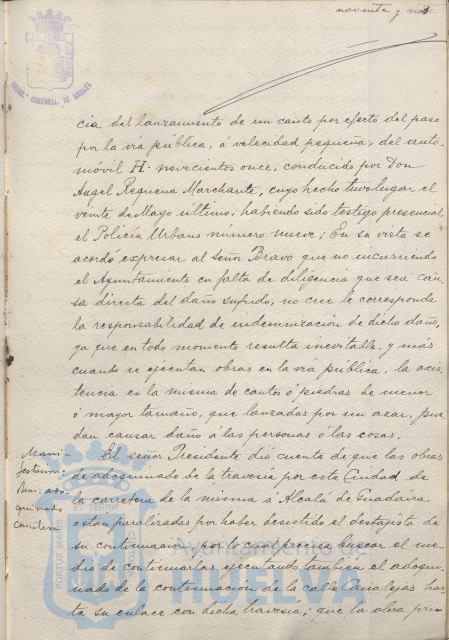 noventa y siete
cia del lanzamiento de un canto por efecto del paso
por la vía pública, á velocidad pequeña, del auto-
móvil H. novecientos once, conducido por Don
Angel Requena Marchante, cuyo hecho tuvo lugar el
veinte de Mayo último, habiendo sido testigo presencial
el Policía Urbano número nueve; En su vista se
acordó expresar al Señor Bravo que no incurriendo
el Ayuntamiento en falta de diligencia que sea cau
sa directa del daño sufrido, no cree le corresponda
la responsabilidad de indemnización de dicho daño,
ya que en todo momento resulta inevitable, y más
cuando se ejecutan obras en la vía pública, la exis
tencia en la misma de cantos ó piedras de menor
ó mayor tamaño, que lanzadas por un azar, pue
dan causar daño á las personas ó las cosas.
Mani-
festacion:
ado-
quinado
carretera
El señor Presidente dió cuenta de que las obras
de adoquinado de la travesía por esta Ciudad de
la carretera de la misma á Alcalá de Guadaira
están paralizadas por haber desistido el destajista de
su continuacion, por lo cual precisa buscar el me-
dio de continuarlas ejecutando tambien el adoqui-
nado de la continuación de la calle Canalejas has
ta su enlace con dicha travesía; que la obra pri-
Ayuntamiento de
HUELVA
PORTUS MARIS
ET TERRE